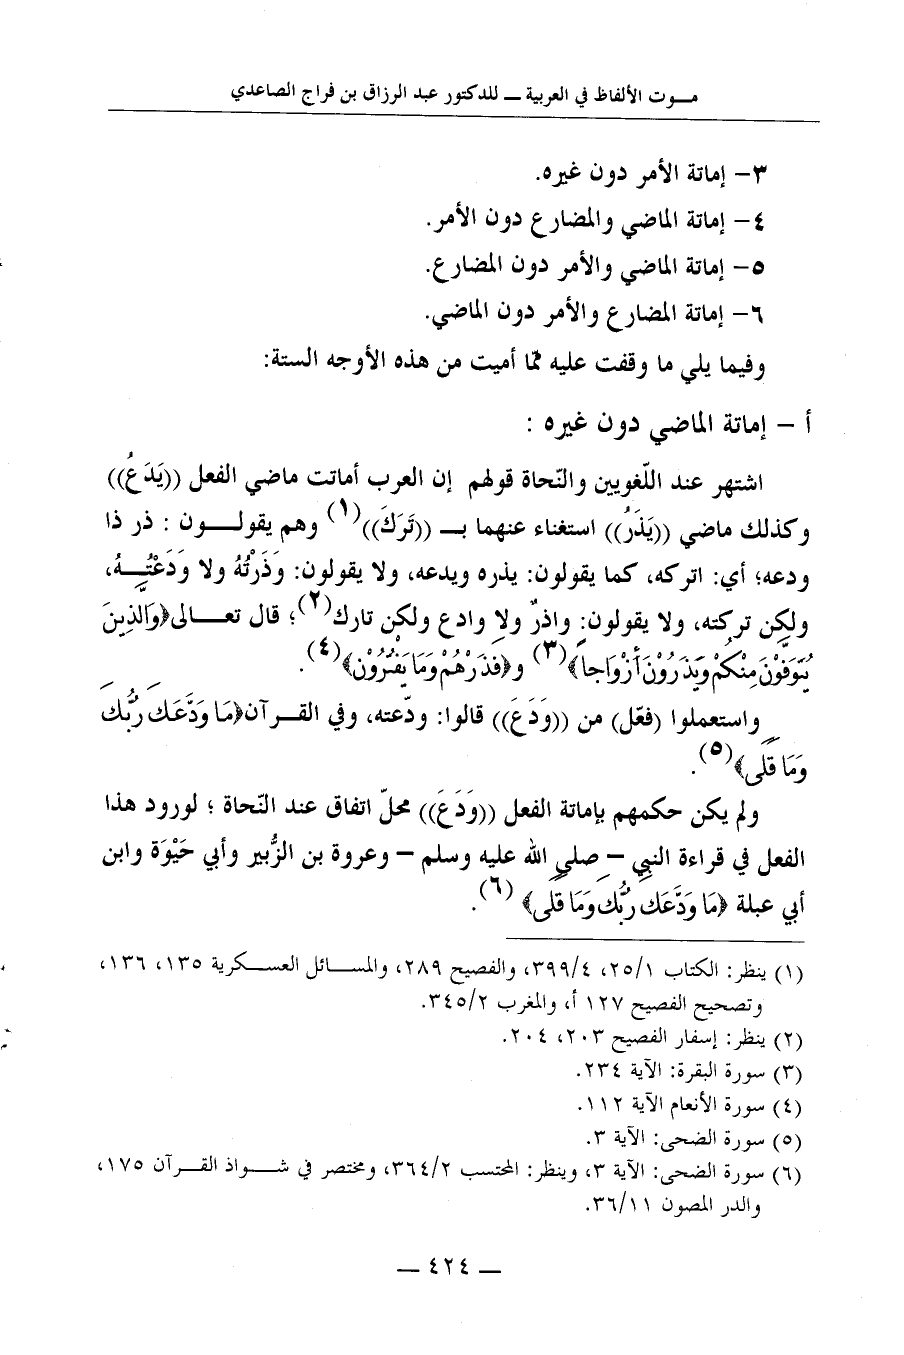 موت الألفاظ في العربية ــ للدكتور عبد الرزاق بن فراج الصاعدي
٣- إماتة الأمر دون غيره.
٤- إماتة الماضي والمضارع دون الأمر.
٥- إماتة الماضي والأمر دون المضارع.
٦- إماتة المضارع والأمر دون الماضي.
وفيما يلي ما وقفت عليه ممّا أميت من هذه الأوجه الستة:
أ - إماتة الماضي دون غيره :
اشتهر عند اللّغويين والنّحاة قولهم إن العرب أماتت ماضي الفعل ((يَدَعُ))
وكذلك ماضي ((يَذَرُ)) استغناء عنهما بـ ((تَرَكَ))(١) وهم يقولون : ذر ذا
ودعه؛ أي: اتركه، كما يقولون: يذره ويدعه، ولا يقولون: وَذَرْتُهُ ولا وَدَعْتُهُ،
ولكن تركته، ولا يقولون: واذرٌ ولا وادع ولكن تارك(٢)؛ قال تعالى﴿وَالَّذِينَ
يُتَوَفَّوْنَ مِنْكُمْ وَيَذَرُوْنَ أَزْوَاجاً﴾(٣) و﴿فَذَرْهُمْ وَمَا يَفْتَرُوْن﴾(٤).
واستعملوا (فعّل) من ((وَدَعَ)) قالوا: ودّعته، وفي القرآن﴿مَا وَدَّعَكَ رَبُّكَ
وَمَا قَلَى﴾(٥).
ولم يكن حكمهم بإماتة الفعل ((وَدَعَ)) محلّ اتفاق عند النّحاة ؛ لورود هذا
الفعل في قراءة النبي – صلى الله عليه وسلم – وعروة بن الزُّبير وأبي حَيْوَة وابن
أبي عبلة ﴿مَا وَدَّعَكَ رَبُّكَ وَمَا قَلَى﴾ (٦).
(١) ينظر: الكتاب ٢٥/١، ٣٩٩/٤، والفصيح ٢٨٩، والمسائل العسكرية ١٣٥، ١٣٦،
وتصحيح الفصيح ١٢٧ أ، والمغرب ٣٤٥/٢.
(٢) ينظر: إسفار الفصيح ٢٠٣، ٢٠٤.
(٣) سورة البقرة: الآية ٢٣٤.
(٤) سورة الأنعام الآية ١١٢.
(٥) سورة الضحى: الآية ٣.
(٦) سورة الضحى: الآية ٣، وينظر: المحتسب ٣٦٤/٢، ومختصر في شواذ القرآن ١٧٥،
والدر المصون ٣٦/١١.
ــ ٤٢٤ ــ